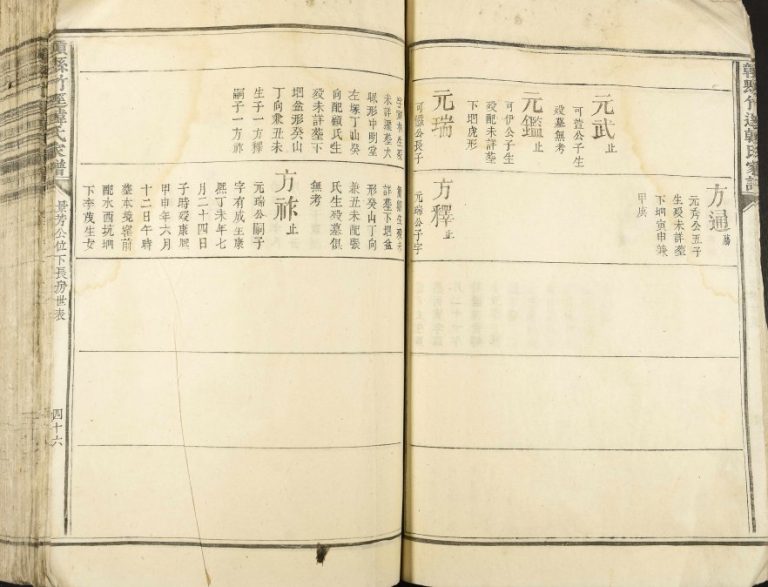 元武止
可萱公子生
歿墓無考
元鑑止
可伊公子生
歿配未詳塟
下垇虎形
元瑞
公長子
生歿
未詳塟大
形中明堂
左塚丁山癸
向配顧氏生
歿未詳塟下
垇盆形癸山
丁向兼丑未
生子一方釋
嗣子一方祚
方通
元秀公五子
生歿未詳塟
下垇寅申兼
甲庚
方釋止
元瑞公子字
生歿未
詳塟下垇盆
形癸山丁向
兼丑未配張
氏生歿墓俱
無考
方祚止
元瑞公嗣子
字有成生康
熙丁未年七
月二十四日
子時歿康熙
甲申年六月
十二日午時
塟本境窰前
配水西坑垇
下李茂生女
縣竹逕韓氏家譜
景芳公位下長房世表
四十六